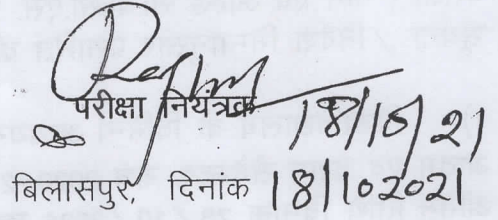 परीक्षा नियंत्रक
18/10/21
बिलासपुर, दिनांक 18/10 2021